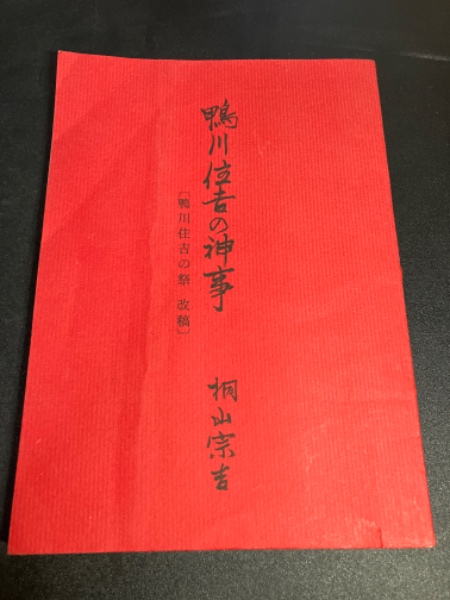 鴨川住吉の神事
〔鴨川住吉の祭 改稿〕
桐山宗吉